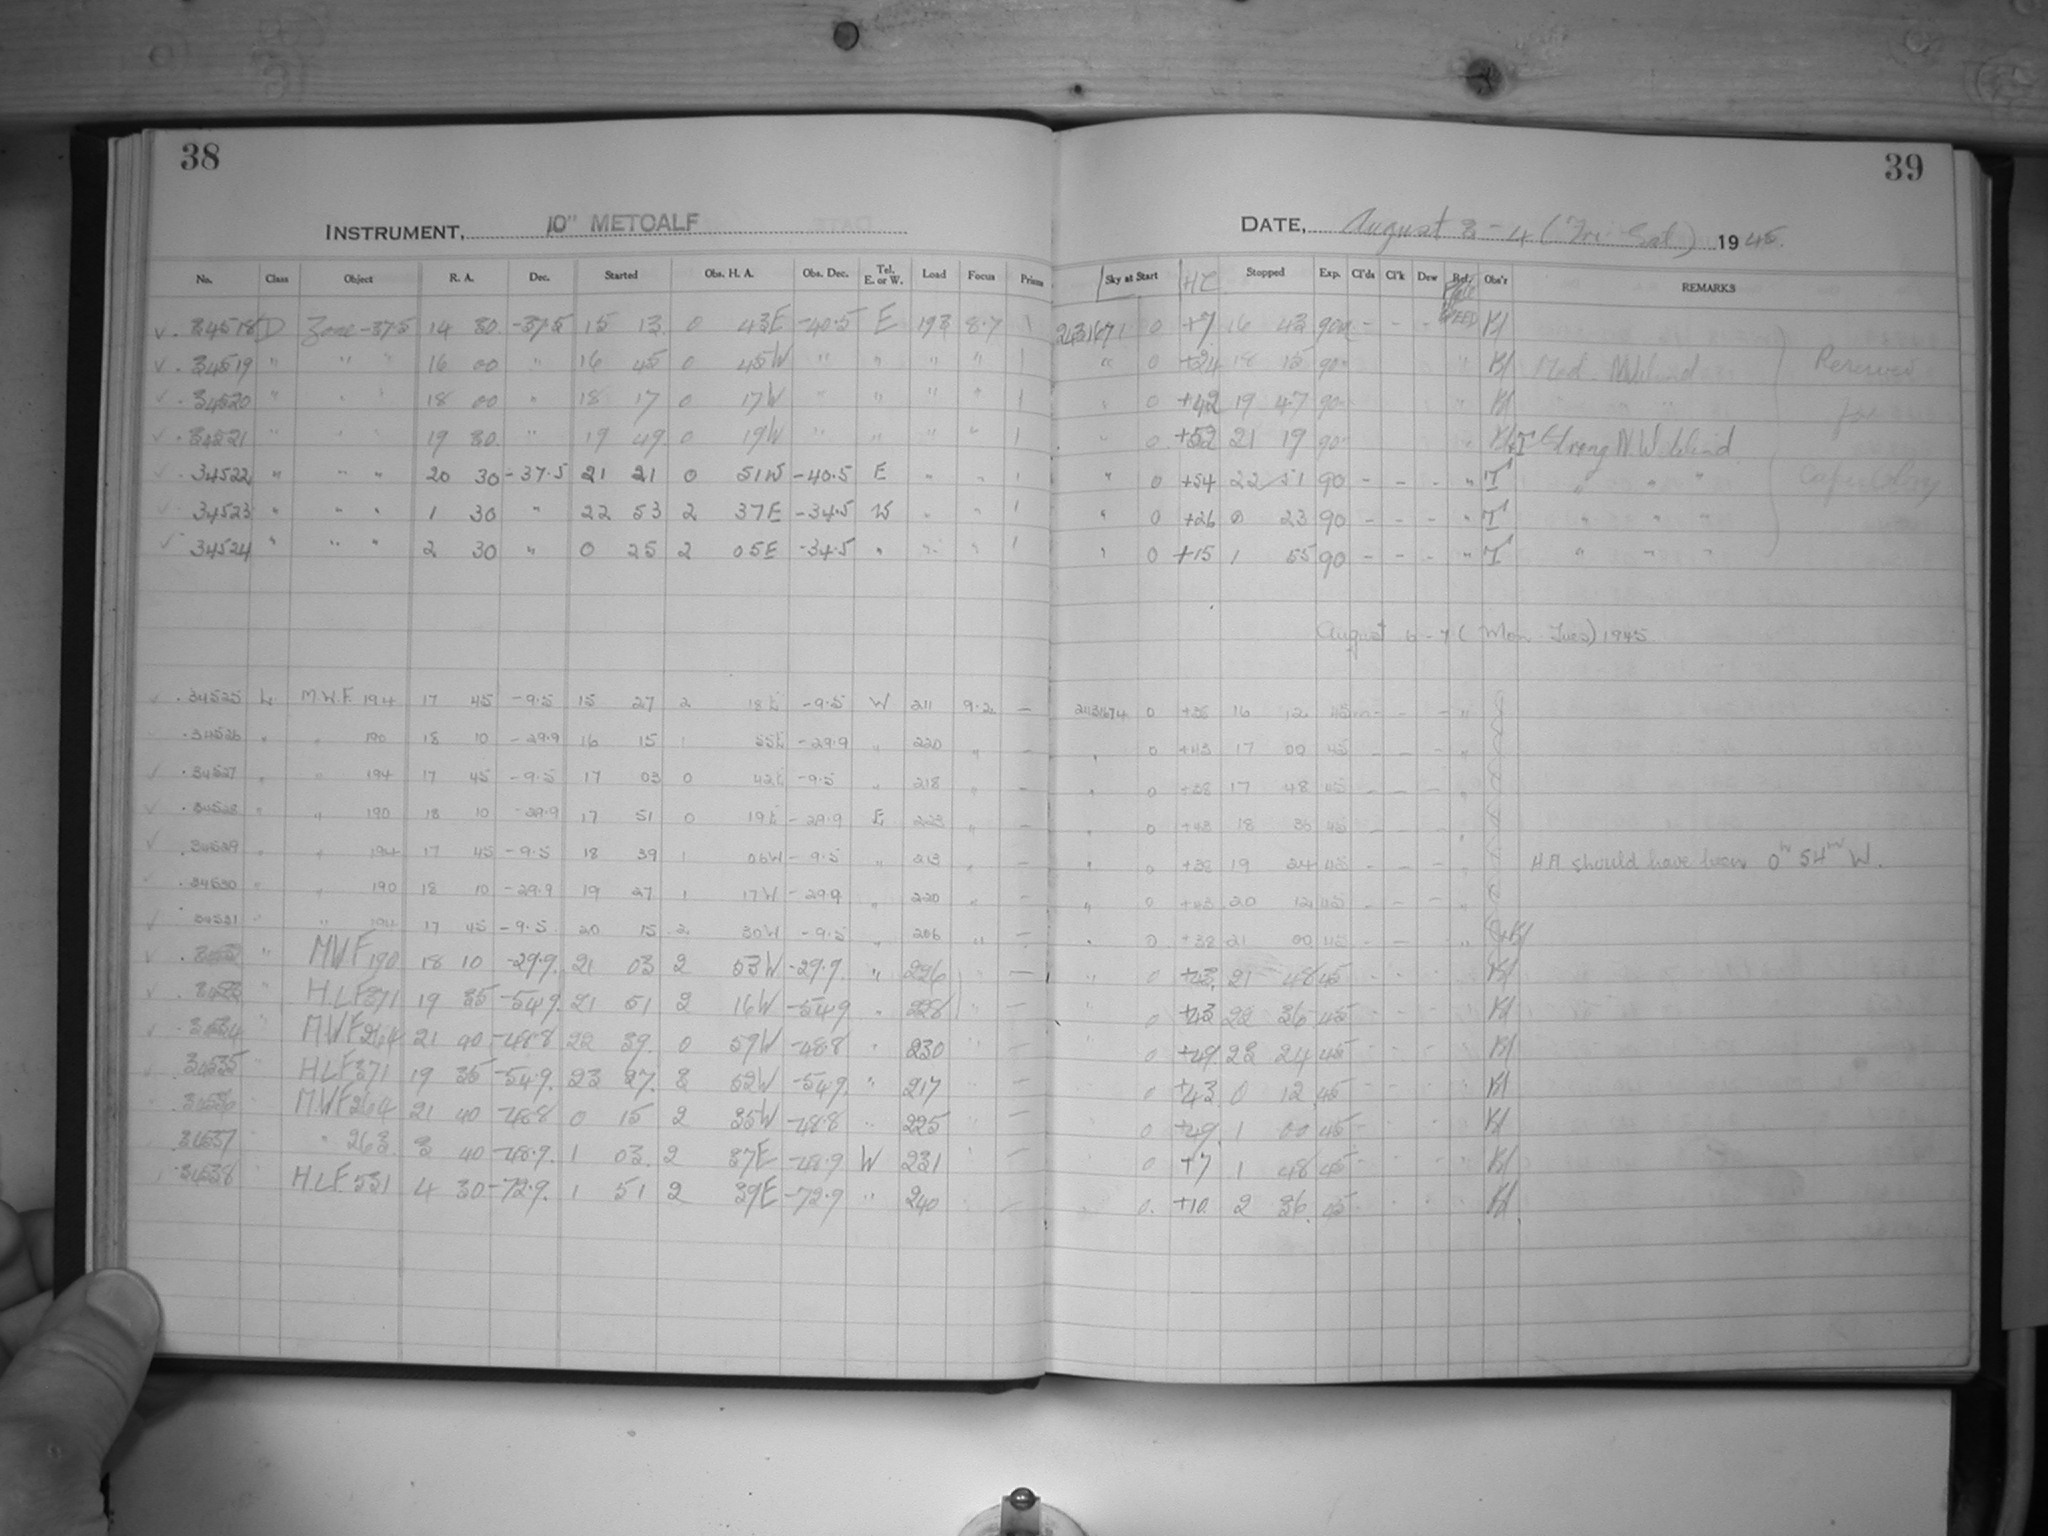 38
39
INSTRUMENT, 10" METCALF
DATE, August 3-4 (Fri Sat) 1945.
No. Class Object R. A. Dec. Started Obs. H. A. Obs. Dec. Tel. E. or W. Load Focus Prism Sky at Start HC Stopped Exp. Cl'ds Cl'k Dew Ref. Obs'r REMARKS
34518 D Zone -37.5 14 30 -37.5 15 13 0 43E -40.5 E 193 8.7 1 2431671 0 +7 16 43 90m - - -
34519 " " " 16 00 " 16 45 0 45W " " " " 1 " 0 +24 18 15 90 " Med. N.W. wind Reserved
34520 " " " 18 00 " 18 17 0 17W " " " " 1 " 0 +42 19 47 90 " for
34521 " " " 19 30 " 19 49 0 19W " " " " 1 " 0 +52 21 19 90 " Strong N.W. Wind
34522 " " " 20 30 -37.5 21 21 0 51W -40.5 E " " 1 " 0 +54 22 51 90 - - - " T " " "
34523 " " " 1 30 " 22 53 2 37E -34.5 W " " 1 " 0 +26 0 23 90 - - - " T " " "
34524 " " " 2 30 " 0 25 2 05E -34.5 " " " 1 " 0 +15 1 55 90 - - - " T " " "
August 6-7 (Mon. Tues) 1945
34525 L M.W.F. 194 17 45 -9.5 15 27 2 18E -9.5 W 211 9.2 - 2431674 0 +38 16 12 45m - - - "
34526 " " 190 18 10 -29.9 16 15 1 55E -29.9 " 220 " - " 0 +43 17 00 45 - - - "
34527 " " 194 17 45 -9.5 17 03 0 42E -9.5 " 218 " - " 0 +38 17 48 45 - - - "
34528 " " 190 18 10 -29.9 17 51 0 19E -29.9 E 223 " - " 0 +43 18 36 45 - - - "
34529 " " 194 17 45 -9.5 18 39 1 06W -9.5 " 213 " - " 0 +38 19 24 45 - - - " H.A should have been 0h 54m W.
34530 " " 190 18 10 -29.9 19 27 1 17W -29.9 " 220 " - " 0 +43 20 12 45 - - - "
34531 " " 194 17 45 -9.5 20 15 2 30W -9.5 " 206 " - " 0 +38 21 00 45 - - - "
34532 " MWF 190 18 10 -29.9 21 03 2 53W -29.9 " 226 " - " 0 +43 21 48 45
34533 " HLF 371 19 35 -54.9 21 51 2 16W -54.9 " 228 " - " 0 +43 22 36 45
34534 " MWF 264 21 40 -48.8 22 39 0 59W -48.8 " 230 " - " 0 +49 23 24 45
34535 " HLF 371 19 35 -54.9 23 27 3 52W -54.9 " 217 " - " 0 +43 0 12 45
34536 " MWF 264 21 40 -48.8 0 15 2 35W -48.8 " 225 " - 0 +49 1 00 45
34537 " " 263 3 40 -48.9 1 03 2 37E -48.9 W 231 " - 0 +7 1 48 45
34538 " HLF 531 4 30 -72.9 1 51 2 39E -72.9 " 240 - 0 +10 2 36 45